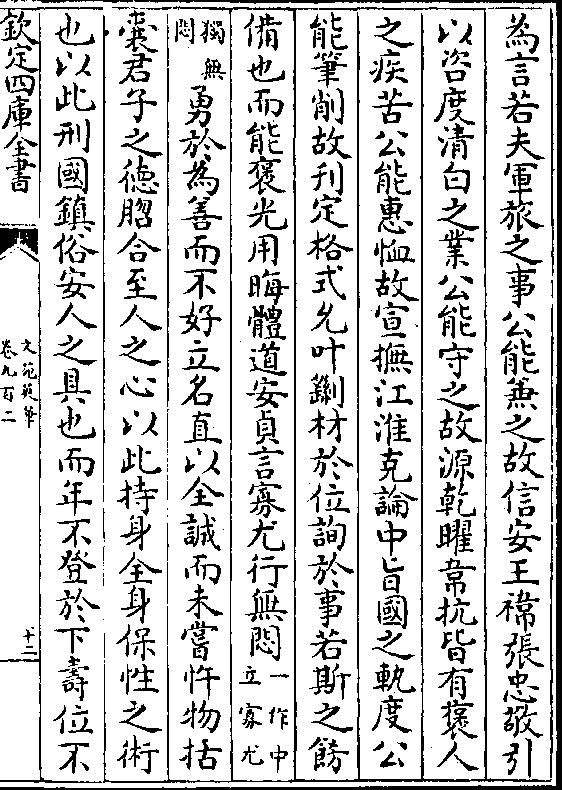 為言若夫軍旅之事公能兼之故信安王禕張忠敬引
以咨度清白之業公能守之故源乾曜韋抗皆有褒人
之疾苦公能惠恤故宣撫江淮克論中旨國之軌度公
能筆削故刋定格式允叶劘材於位詢於事若斯之餝
備也而能褒光用晦體道安貞言寡尤行無悶一作中立寡尤
獨無悶勇於為善而不好立名直以全誠而未嘗忤物括
囊君子之德脗合至人之心以此持身全身保性之術
也以此刑國鎮俗安人之具也而年不登於下壽位不
欽定四庫全書
文苑英華
卷九百二
十二